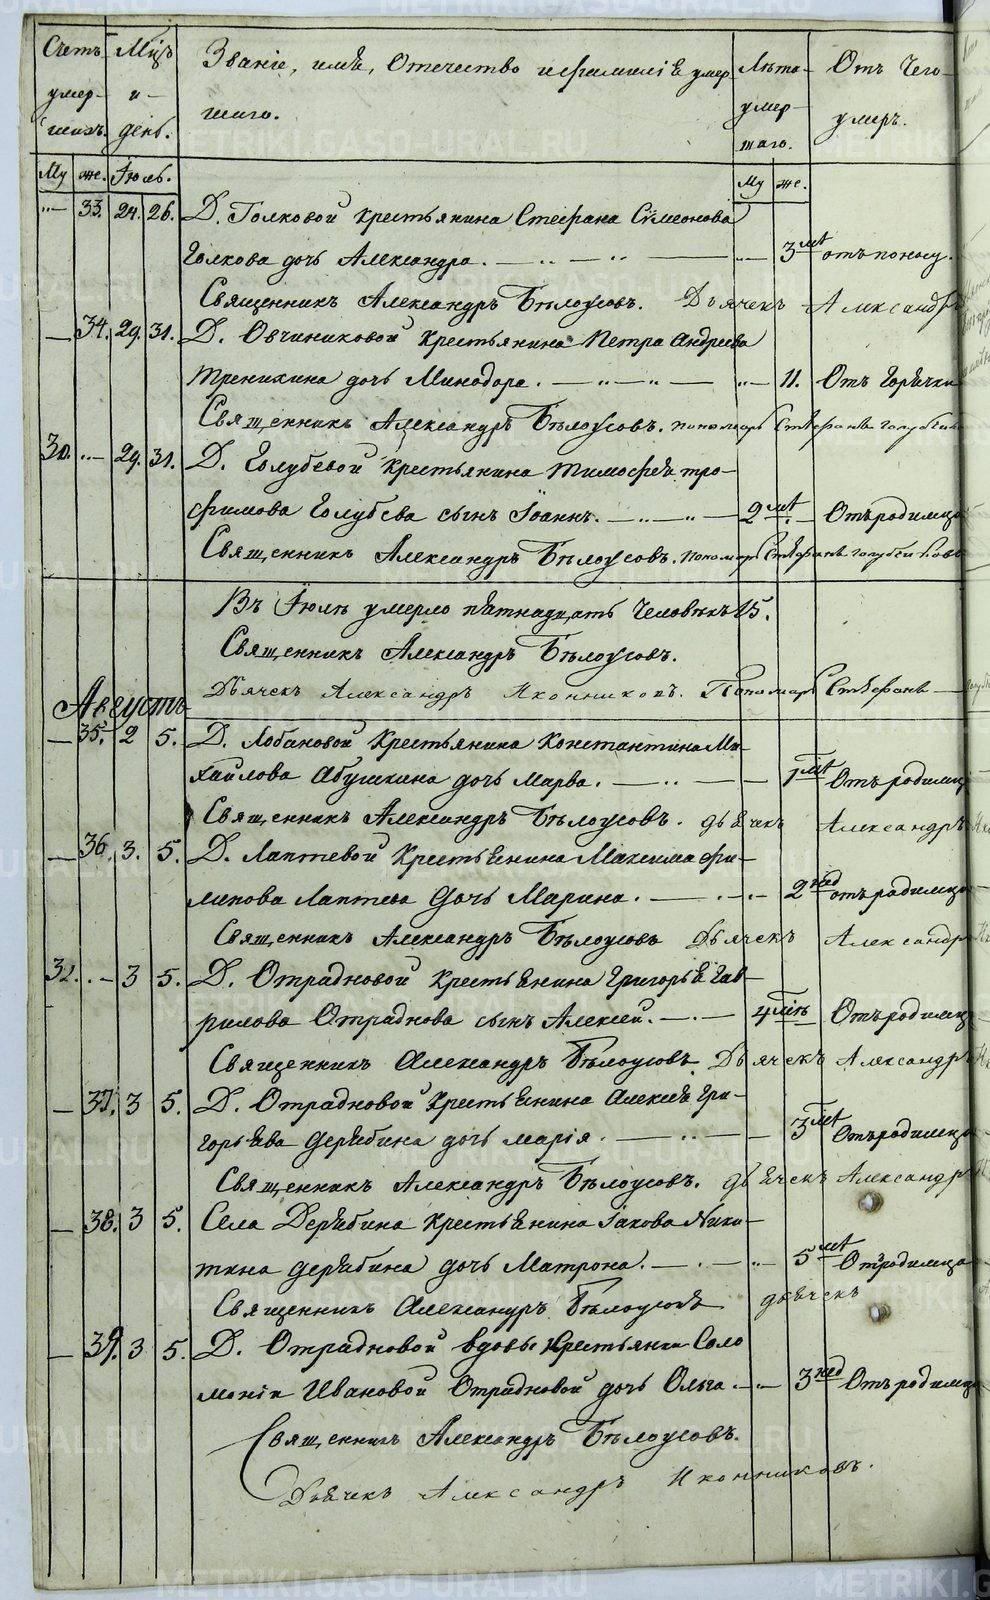 Счетъ умер- шихъ.
Мцъ и день.
Званіе, имя, Отечество и фамилія умер-
шаго.
Лѣта умер- шаго.
Отъ Чего умеръ.
Му же. Іюль. Му же.
"— 33. 24. 26. Д. Голковой крестьянина Стефана Сѵмеонова
Голкова дочь Александра. — 3 лѣт отъ поносу.
Священникъ Александръ Бѣлоусовъ. Дьячекъ Александръ
— 34. 29. 31. Д. Овчиниковой Крестьянина Петра Андреева
дочь Минодора. — 11. Отъ Горячки
Священникъ Александръ Бѣлоусовъ. пономарь Стефанъ
30. — 29. 31. Д. Голубевой Крестьянина Тимофея тро-
фимова Голубева сынъ Іоаннъ. — 2 лѣт. — Отъ родимца
Священникъ Александръ Бѣлоусовъ. пономарь Стефанъ
Въ Іюлѣ умерло пятнадцать Человѣкъ 15.
Священникъ Александръ Бѣлоусовъ.
Дьячекъ Александръ Иконниковъ. Пономарь Стефанъ
Августъ
— 35. 2 5. Д. Лобановой Крестьянина Константина Ми-
хайлова Абушкина дочь Марва. — 1 лѣт Отъ родимца
Священникъ Александръ Бѣлоусовъ. дьячекъ Александръ
— 36. 3. 5. Д. Лаптевой Крестьянина Максима Фи-
липова Лаптева Дочь Марина. — 2 нед отъ родимца
Священникъ Александръ Бѣлоусовъ Дьячекъ Александръ
31. — 3 5. Д. Отрадновой Крестьянина Григорья Гав-
рилова Отраднова сынъ Алексей. — 4 лѣт Отъ родимца
Священникъ Александръ Бѣлоусовъ. Дьячекъ Александръ
— 37. 3 5. Д. Отрадновой Крестьянина Алексея Гри-
горьева Дерябина дочь марія. — 3 лѣт Отъ родимца
Священникъ Александръ Бѣлоусовъ. дьячекъ Александръ
— 38. 3 5. Села Дерябина Крестьянина Іакова Ники-
тина Дерябина дочь Матрона. — 5 лѣт Отъ родимца
Священникъ Александръ Бѣлоусовъ дьячекъ
— 39. 3 5. Д. Отрадновой вдовы Крестьянки Соло
моніи Ивановой Отрадновой дочь Ольга. — 3 нед Отъ родимца
Священникъ Александръ Бѣлоусовъ.
Дьячекъ Александръ Иконниковъ.